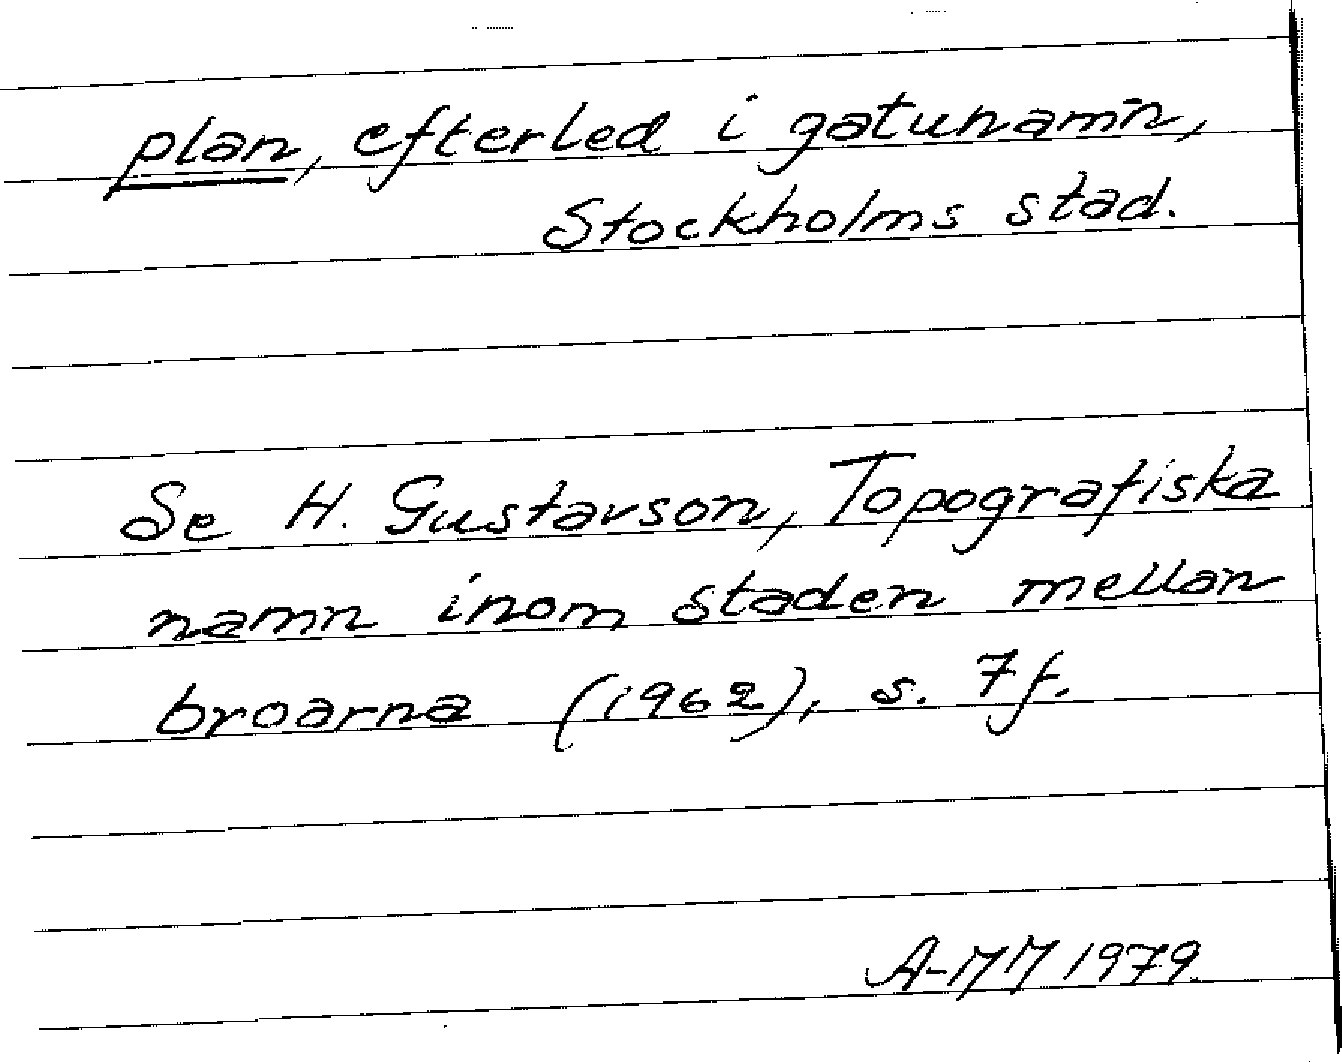 plan, efterled i gatunamn,
Stockholms stad.
Se H. Gustavson, Topografiska
namn inom staden mellan
broarna (1962), s. 7 f.
A-MM 1979